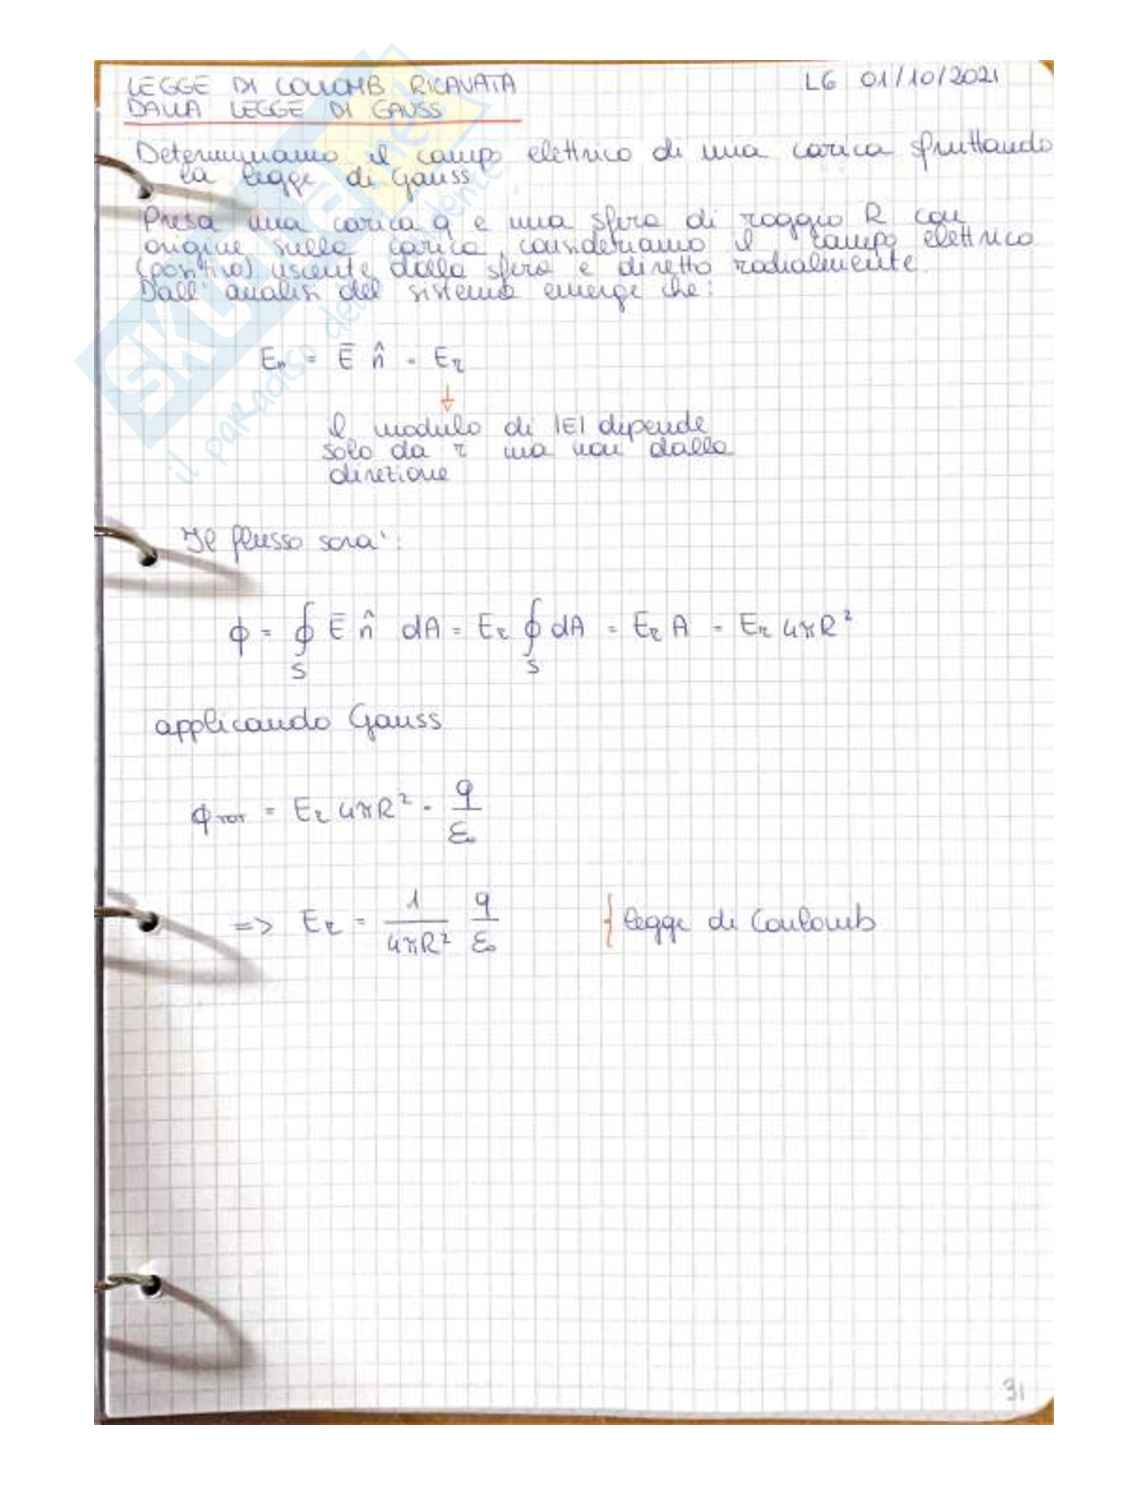 LEGGE DI COULOMB RICAVATA L6 01/10/2021
DALLA LEGGE DI GAUSS
Determiniamo il campo elettrico di una carica sfruttando
la legge di Gauss
Presa una carica q e una sfera di raggio R con
origine sulla carica, consideriamo il campo elettrico
(positivo) uscente dalla sfera e diretto radialmente.
Dall'analisi del sistema emerge che:
En = Ē n̂ = Er
il modulo di |E| dipende
solo da r ma non dalla
direzione
Il flusso sarà:
ϕ = ∮S Ē n̂ dA = Er ∮S dA = Er A = Er 4πR²
applicando Gauss
ϕTOT = Er 4πR² = q/ε₀
=> Er = 1/4πR² q/ε₀ { legge di Coulomb
31
SKUOLA.net
il paradiso dello studente